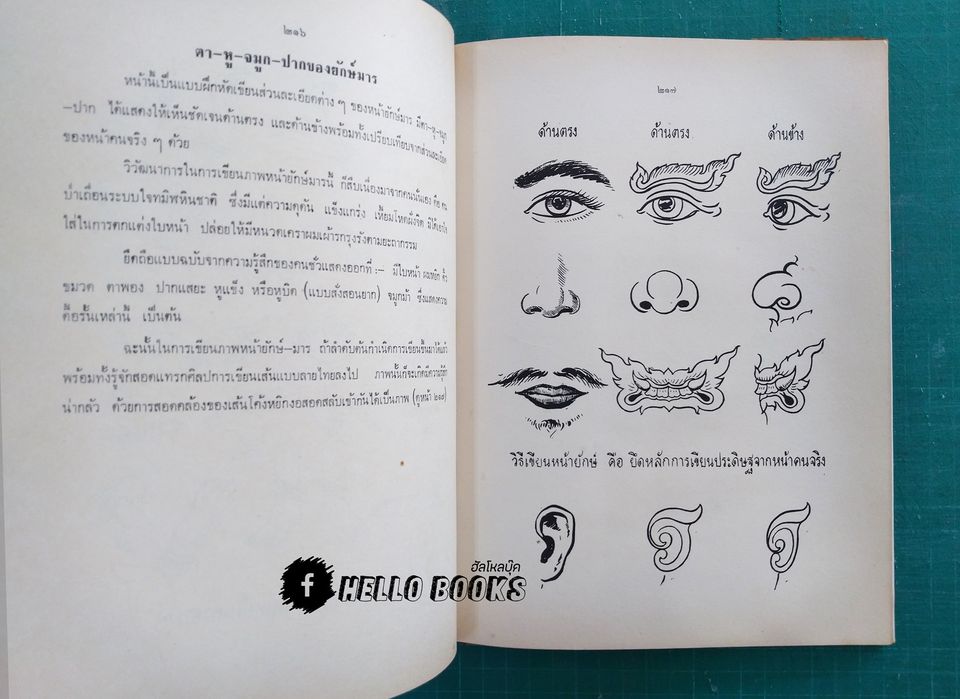 ๒๑๖
ตา-หู-จมูก-ปากของยักษ์มาร
หน้านี้เป็นแบบฝึกหัดเขียนส่วนละเอียดต่าง ๆ ของหน้ายักษ์มาร มีตา-หู-จมูก
-ปาก ได้แสดงให้เห็นชัดเจนด้านตรง และด้านข้างพร้อมทั้งเปรียบเทียบจากส่วนละเอียด
ของหน้าคนจริง ๆ ด้วย
วิวัฒนาการในการเขียนภาพหน้ายักษ์มารนี้ ก็สืบเนื่องมาจากคนนั้นเอง คือ คน
ป่าเถื่อนระบบใจทมิฬหินชาติ ซึ่งมีแต่ความดุดัน แข็งแกร่ง เหี้ยมโหด มิได้เอาใจ
ใส่ในการตกแต่งใบหน้า ปล่อยให้มีหนวดเคราผมเผ้ารกรุงรังตามยะถากรรม
ยึดถือแบบฉบับจากความรู้สึกของคนชั่วแสดงออกที่ :- มีใบหน้า ผมหยิก คิ้ว
ขมวด ตาพอง ปากแสยะ หูแข็ง หรือหูบิด (แบบสั่งสอนยาก) จมูกม้า ซึ่งแสดงความ
ดื้อรั้นเหล่านี้ เป็นต้น
ฉะนั้นในการเขียนภาพหน้ายักษ์-มาร ถ้าลำดับต้นกำเนิดการเขียนขึ้นมาได้แล้ว
พร้อมทั้งรู้จักสอดแทรกศิลปการเขียนเส้นแบบลายไทยลงไป ภาพนั้นก็จะเกิดมีความรู้สึก
น่ากลัว ด้วยการสอดคล้องของเส้นโค้งหยิกงอสอดสลับเข้ากันได้เป็นภาพ (ดูหน้า ๒๑๗)
๒๑๗
ด้านตรง ด้านตรง ด้านข้าง
วิธีเขียนหน้ายักษ์ คือ ยึดหลักการเขียนประดิษฐจากหน้าคนจริง
ฮัลโหลบุ๊ค
f HELLO BOOKS